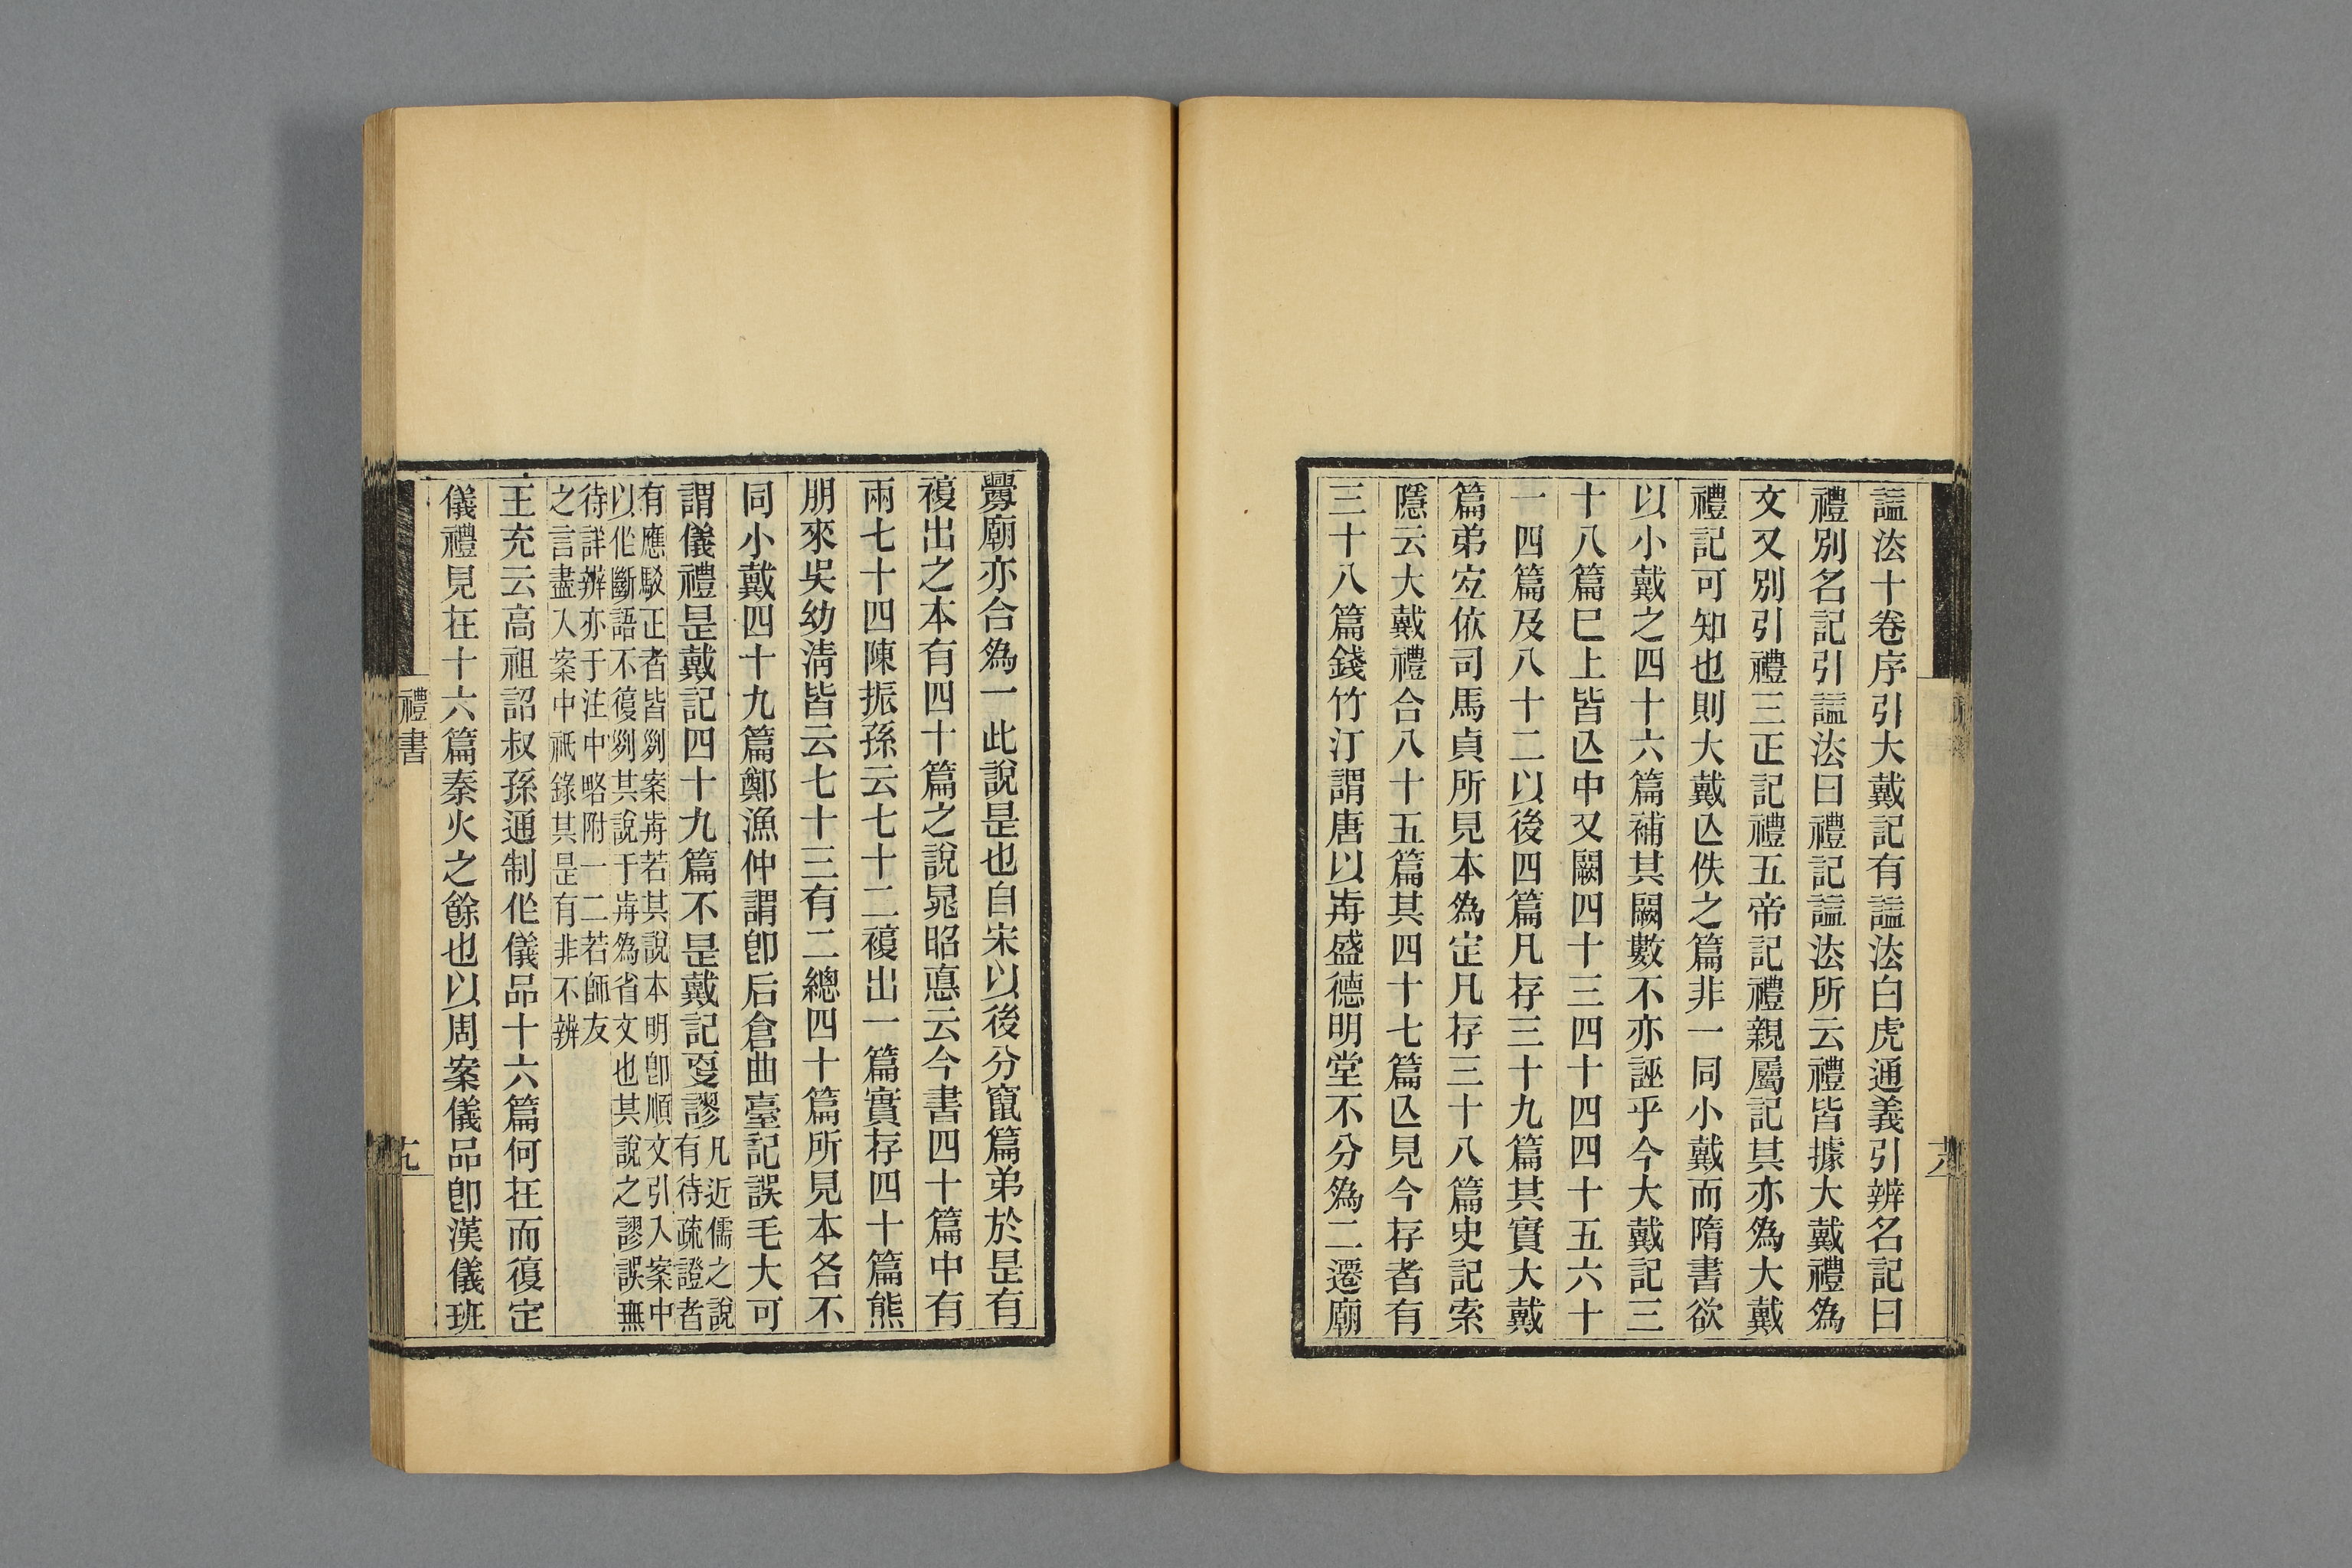 諡法十卷序引大戴記有諡法白虎通義引辨名記曰
禮別名記引諡法曰禮記諡法所云禮皆據大戴禮為
文又別引禮三正記禮五帝記禮親屬記其亦為大戴
禮記可知也則大戴亾佚之篇非一同小戴而隋書欲
以小戴之四十六篇補其闕數不亦誣乎今大戴記三
十八篇巳上皆亾中又闕四十三四十四四十五六十
一四篇及八十二以後四篇凡存三十九篇其實大戴
篇弟宐依司馬貞所見本為定凡存三十八篇史記索
隱云大戴禮合八十五篇其四十七篇亾見今存者有
三十八篇錢竹汀謂唐以歬盛德明堂不分為二遷廟
釁廟亦合為一此說是也自宋以後分竄篇弟於是有
複出之本有四十篇之說晁昭悳云今書四十篇中有
兩七十四陳振孫云七十二複出一篇實存四十篇熊
朋來吳幼清皆云七十三有二總四十篇所見本各不
同小戴四十九篇鄭漁仲謂卽后倉曲臺記誤毛大可
謂儀禮是戴記四十九篇不是戴記㪅謬凡近儒之說
有待疏證者
有應駁正者皆列案歬若其說本明卽順文引入案中
以作斷語不復列其說于歬為省文也其說之謬誤無
待詳辨亦于注中略附一二若師友
之言盡入案中祇錄其是有非不辨
王充云高祖詔叔孫通制作儀品十六篇何在而復定
儀禮見在十六篇秦火之餘也以周案儀品卽漢儀班
禮書
十九